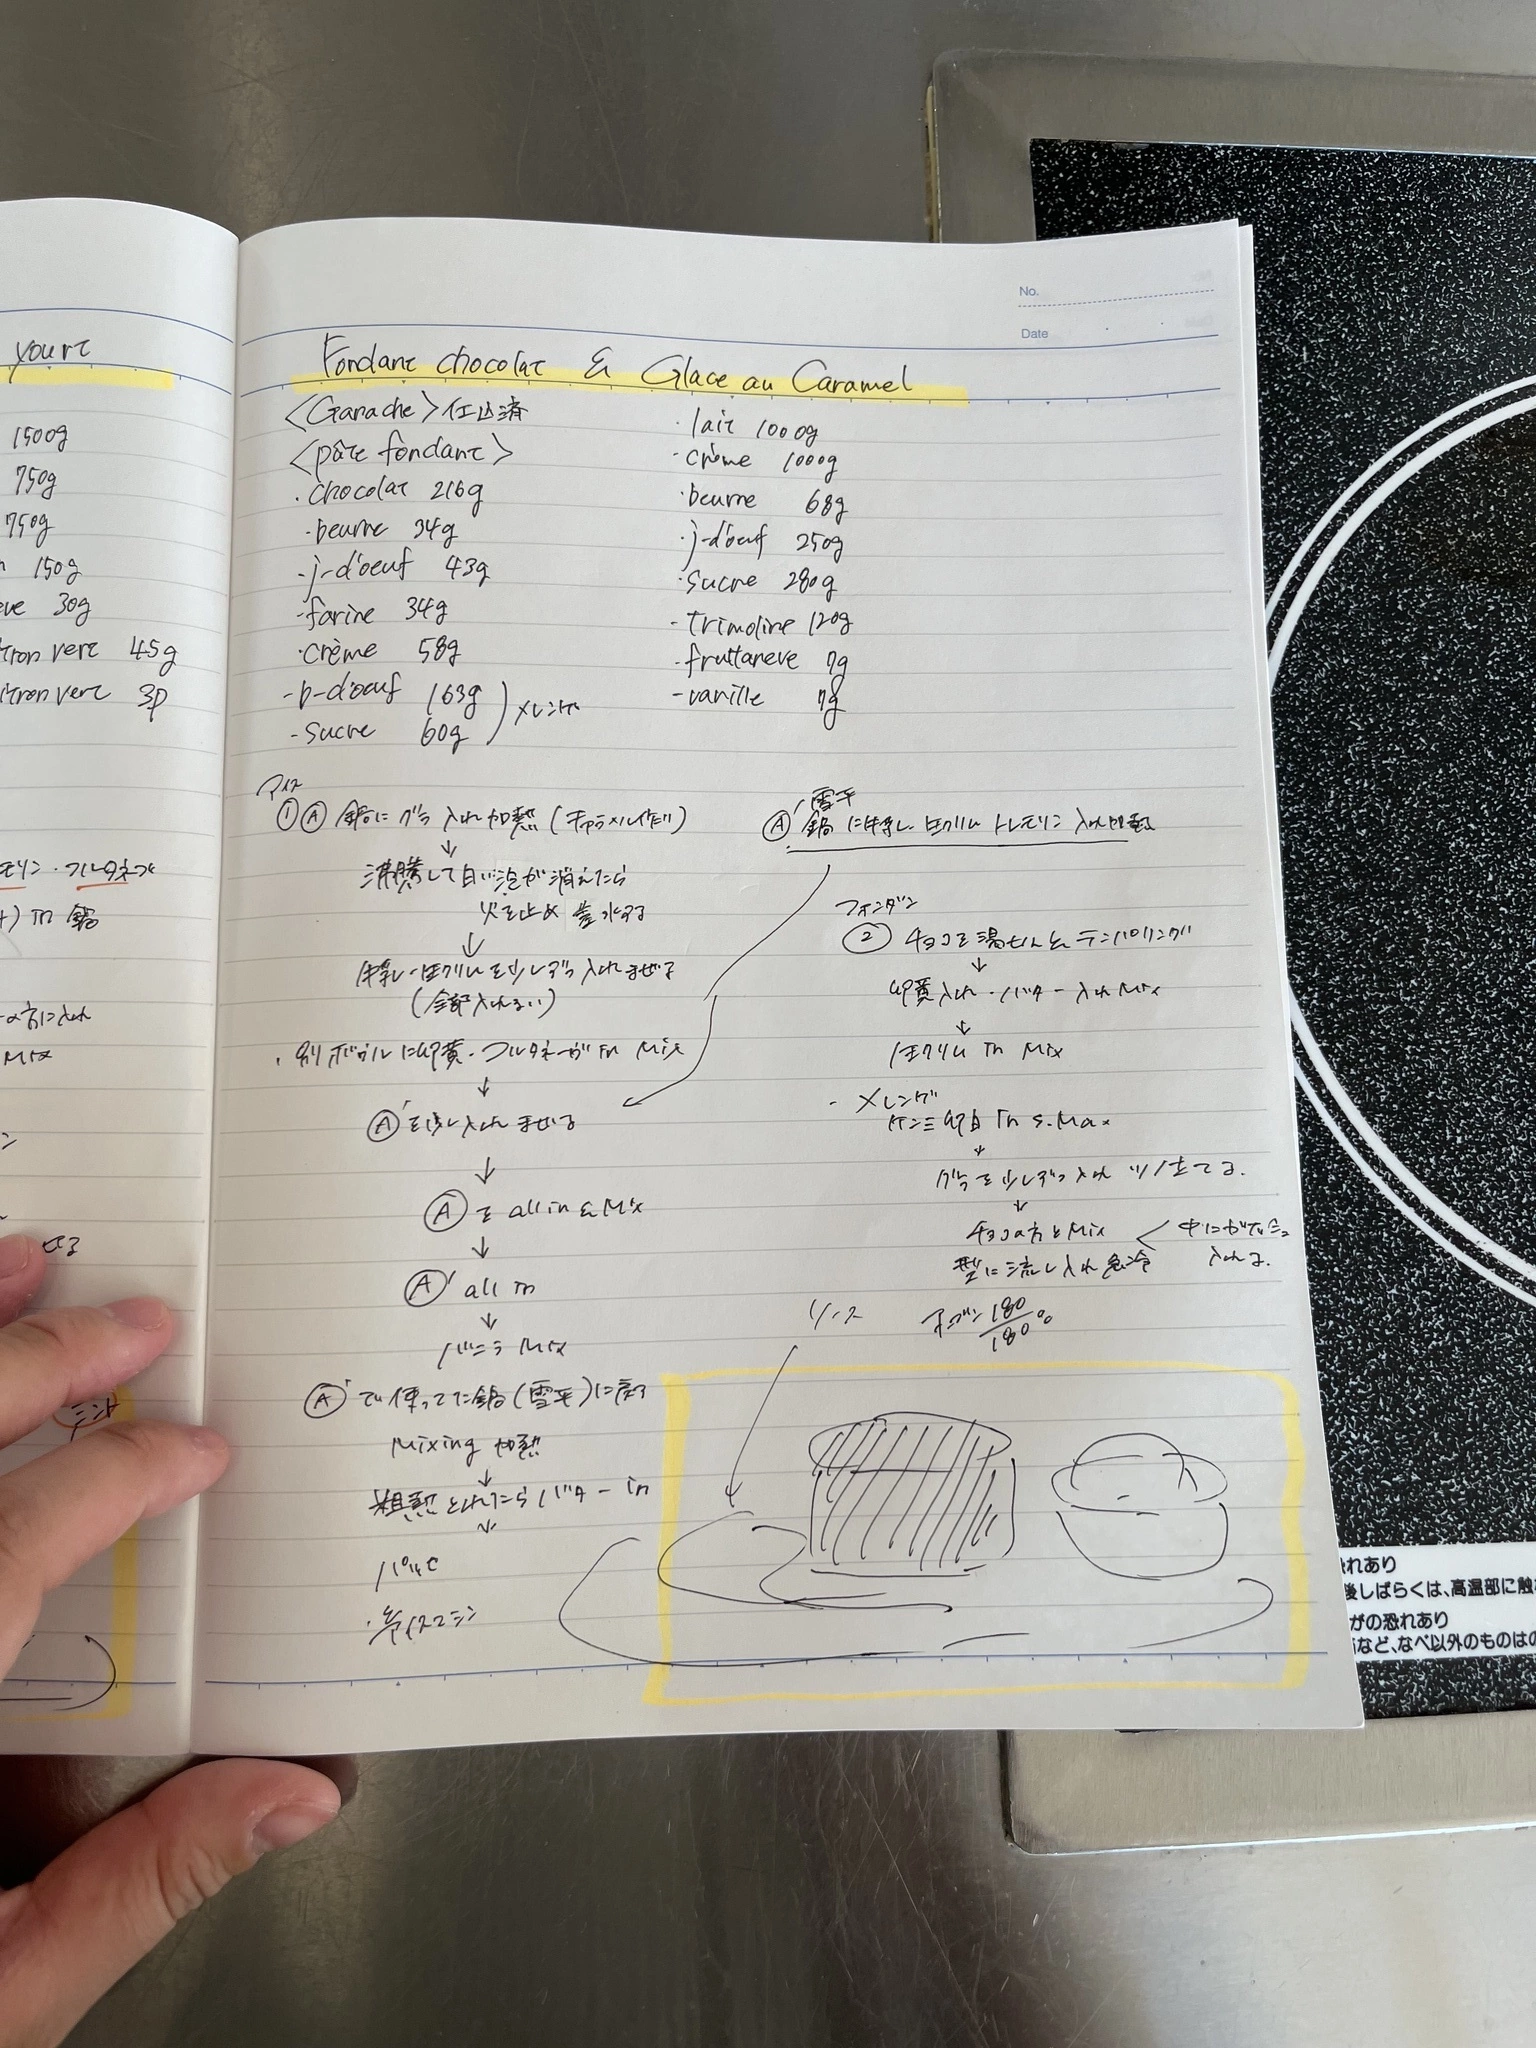 yourt
1500g
750g
750g
150g
30g
tron vert 45g
itron vert 3p
モリン・フルタネーヴ
in 鍋
Mix
ミント
No.
Date
Fondant chocolat & Glace au Caramel
<Ganache>仕込済
<pâte fondant>
・chocolat 216g
・beurre 34g
・j-d'oeuf 43g
・farine 34g
・crème 58g
・b-d'oeuf 163g
・sucre 60g
メレンゲ
・lait 1000g
・crème 1000g
・beurre 68g
・j-d'oeuf 250g
・sucre 280g
・trimoline 120g
・fruttaneve 7g
・vanille 7g
アイス
① Ⓐ 鍋にグラ入れ加熱(キャラメル作り)
↓
沸騰して白い泡が消えたら
火を止め 差水する
↓
牛乳・生クリームを少しずつ入れまぜる
(全部入れない)
・別ボウルに卵黄・フルタネーヴ in Mix
↓
Ⓐ'を少し入れ まぜる
↓
Ⓐを all in & Mix
↓
Ⓐ' all in
↓
バニラ Mix
Ⓐ'で使ってた鍋(雪平)に戻す
Mixing 加熱
↓
粗熱とれたらバター in
↓
・アイスマシン
Ⓐ' 雪平
鍋に牛乳・生クリム トレモリン 入れ加熱
フォンダン
② チョコを湯せん& テンパリング
↓
卵黄入れ・バター入れ Mix
↓
生クリム in Mix
・メレンゲ
ケンミ 卵白 in s.Max
↓
グラを少しずつ入れ ツノ立てる.
↓
チョコの方と Mix
中にガナッシュ
入れる.
型に流し入れ急冷
ソース
オーブン 180
180%
恐れあり
後しばらくは、高温部に触
がの恐れあり
など、なべ以外のものは